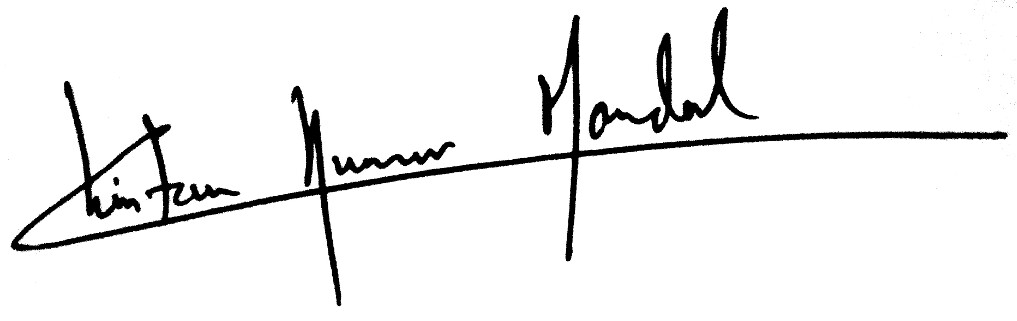 Chintan Kumar Mandal